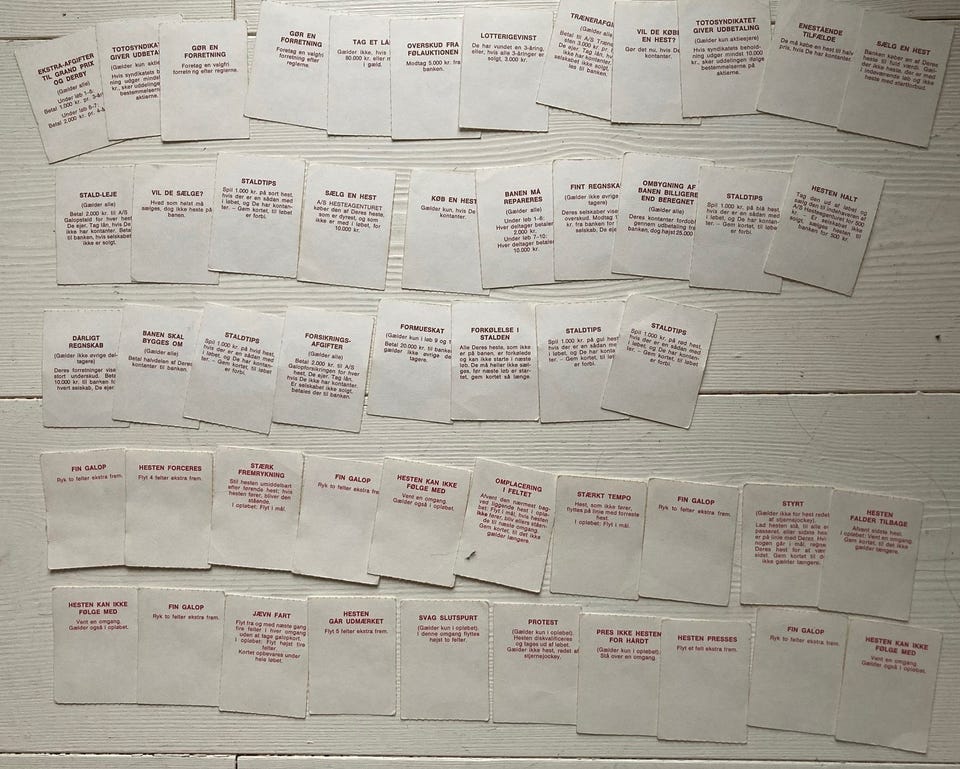 EKSTRA-AFGIFTER
TIL GRAND PRIX
OG DERBY
(Gælder alle)
Under løb 1-6:
Betal 1.000 kr. pr. 3-år
Under løb 6-7
Betal 2.000 kr. pr. 4-å
TOTOSYNDIKA
GIVER UDBETA
(Gælder kun akti
Hvis syndikatets
ning udgør minds
kr., sker uddeling
bestemmelserne
aktierne.
GØR EN
FORRETNING
Foretag en valgfri
forretning efter
reglerne.
GØR EN
FORRETNING
Foretag en valgfri
forretning efter
reglerne.
TAG ET LÅ
Gælder ikke, hvis
80.000 kr. eller m
i gæld.
OVERSKUD FRA
FØLAUKTIONEN
Modtag 5.000 kr. fra
banken.
LOTTERIGEVINST
De har vundet en 3-åring,
eller, hvis alle 3-åringer er
solgt, 3.000 kr.
TRÆNERAFGI
(Gælder alle)
Betal til A/S Træne
3.000 kr. pr.
De ejer. Tag lån,
selskabet ikke
les til banken.
VIL DE KØB
EN HEST?
Gør det nu, hvis De
TOTOSYNDIKATET
GIVER UDBETALING
(Gælder kun aktieejere)
Hvis syndikatets behold-
ning udgør mindst 10.000
kr., sker uddeling ifølge
bestemmelserne på
aktierne.
ENESTÅENDE
TILFÆLDE
De må købe en hest til halv
pris, hvis De har kontanter.
SÆLG EN HEST
Banken køber en af Deres
heste til fuld værdi. Gæl-
der ikke heste, der er med
i indeværende løb og ikke
heste med startforbud.
STALD-LEJE
(Gælder alle)
Betal 2.000 kr. til A/S
Galopstald for hver hest
De ejer. Tag lån, hvis De
ikke har kontanter. Beta
til banken, hvis selskabet
ikke er solgt.
VIL DE SÆLGE?
Hvad som helst må
sælges, dog ikke heste på
banen.
STALDTIPS
Spil 1.000 kr. på sort hest,
hvis der er en sådan med
i løbet, og De har kontan-
ter. – Gem kortet, til løbet
er forbi.
SÆLG EN HEST
A/S HESTEAGENTURET
køber den af Deres heste,
som er dyrest, og som
ikke er med i løbet, for
10.000 kr.
KØB EN HEST
Gælder kun, hvis De har
kontanter.
BANEN MÅ
REPARERES
Under løb 1-6:
Hver deltager betaler
2.000 kr.
Under løb 7-10:
Hver deltager betaler
10.000 kr.
FINT REGNSKA
(Gælder alle)
Deres selskaber vise
overskud. Modtag 1
kr. fra banken for
selskab, De eje
OMBYGNING AF
BANEN BILLIGERE
END BEREGNET
(Gælder alle)
Deres kontanter fordob
gennem udbetaling fra
banken, dog højst 25.000
STALDTIPS
Spil 1.000 kr. på blå hest,
hvis der er en sådan med
i løbet, og De har kontan-
ter. – Gem kortet, til løbet
er forbi.
HESTEN HALT
Tag den ud af løbet og
sælg den til indehaveren af
A/S Hesteagentur for 500
kr. Hvis selskabet ikke
er solgt, sælges hesten til
banken for 500 kr.
DÅRLIGT
REGNSKAB
(Gælder ikke øvrige del-
tagere)
Deres forretninger vise
stort underskud. Beta
10.000 kr. til banken fo
hvert selskab, De ejer
BANEN SKAL
BYGGES OM
(Gælder alle)
Betal halvdelen af Deres
kontanter til banken.
STALDTIPS
Spil 1.000 kr. på hvid hest,
hvis der er en sådan med
i løbet, og De har kontan-
ter. – Gem kortet, til løbet
er forbi.
FORSIKRINGS-
AFGIFTER
(Gælder alle)
Betal 2.000 kr. til A/S
Galopforsikringen for hver
hest, De ejer. Tag lån,
hvis De ikke har kontanter.
Er selskabet ikke solgt,
betales der til banken.
FORMUESKAT
(Gælder kun i løb 9 og 1
Betal 20.000 kr. til banken
gælder ikke øvrige de
tagere.
FORKØLELSE I
STALDEN
Alle Deres heste, som ikke
er på banen, er forkølede
og kan ikke starte i næste
løb. De må heller ikke sæl-
ges, før næste løb er star-
tet, gem kortet så længe.
STALDTIPS
Spil 1.000 kr. på gul hest
hvis der er en sådan me
i løbet, og De har konta
ter. – Gem kortet, til løbe
er forbi.
STALDTIPS
Spil 1.000 kr. på rød hest,
hvis der er en sådan med
i løbet, og De har kontan-
ter. – Gem kortet, til løbet
er forbi.
FIN GALOP
Ryk to felter ekstra frem.
HESTEN FORCERES
Flyt 4 felter ekstra frem.
STÆRK
FREMRYKNING
Stil hesten umiddelbart
efter førende hest; hvis
hesten fører, bliver den
stående.
I opløbet: Flyt i mål.
FIN GALOP
Ryk to felter ekstra fre
HESTEN KAN IKKE
FØLGE MED
Vent en omgang.
Gælder også i opløbet.
OMPLACERING
I FELTET
Afvent den nærmest bag-
ved liggende hest i opløbet:
Flyt i mål, hvis hesten
fører, bliv ellers stående
til næste omgang.
Gem kortet, til det ikke
gælder længere.
STÆRKT TEMPO
Hest, som ikke fører,
flyttes på linie med forreste
hest.
I opløbet: Flyt i mål.
FIN GALOP
Ryk to felter ekstra frem.
STYRT
(Gælder ikke for hest redet
af stjernejockey).
Lad hesten stå, til alle er
passeret, eller sidste hest
er på linie med Deres. Hvi
nogen går i mål, regne
Deres hest for at vær
sidst. Gem kortet, til de
ikke gælder længere.
HESTEN
FALDER TILBAGE
Afvent sidste hest.
I opløbet: Vent en omgang.
Gem kortet, til det ikke
gælder længere.
HESTEN KAN IKKE
FØLGE MED
Vent en omgang.
Gælder også i opløbet.
FIN GALOP
Ryk to felter ekstra frem.
JÆVN FART
Flyt fra og med næste gang
fire felter i hver omgang
uden at tage galopkort.
I opløbet: Flyt højst fire
felter.
Kortet opbevares under
hele løbet.
HESTEN
GÅR UDMÆRKET
Flyt 5 felter ekstra frem.
SVAG SLUTSPURT
(Gælder kun i opløbet).
I denne omgang flyttes
højst to felter.
PROTEST
(Gælder kun i opløbet).
Hesten diskvalificeres
og tages ud af løbet.
Gælder ikke hest, redet af
stjernejockey.
PRES IKKE HESTEN
FOR HÅRDT
(Gælder kun i opløbet)
Stå over en omgang.
HESTEN PRESSES
Flyt et felt ekstra frem.
FIN GALOP
Ryk to felter ekstra frem.
HESTEN KAN IKKE
FØLGE MED
Vent en omgang.
Gælder også i opløbet.